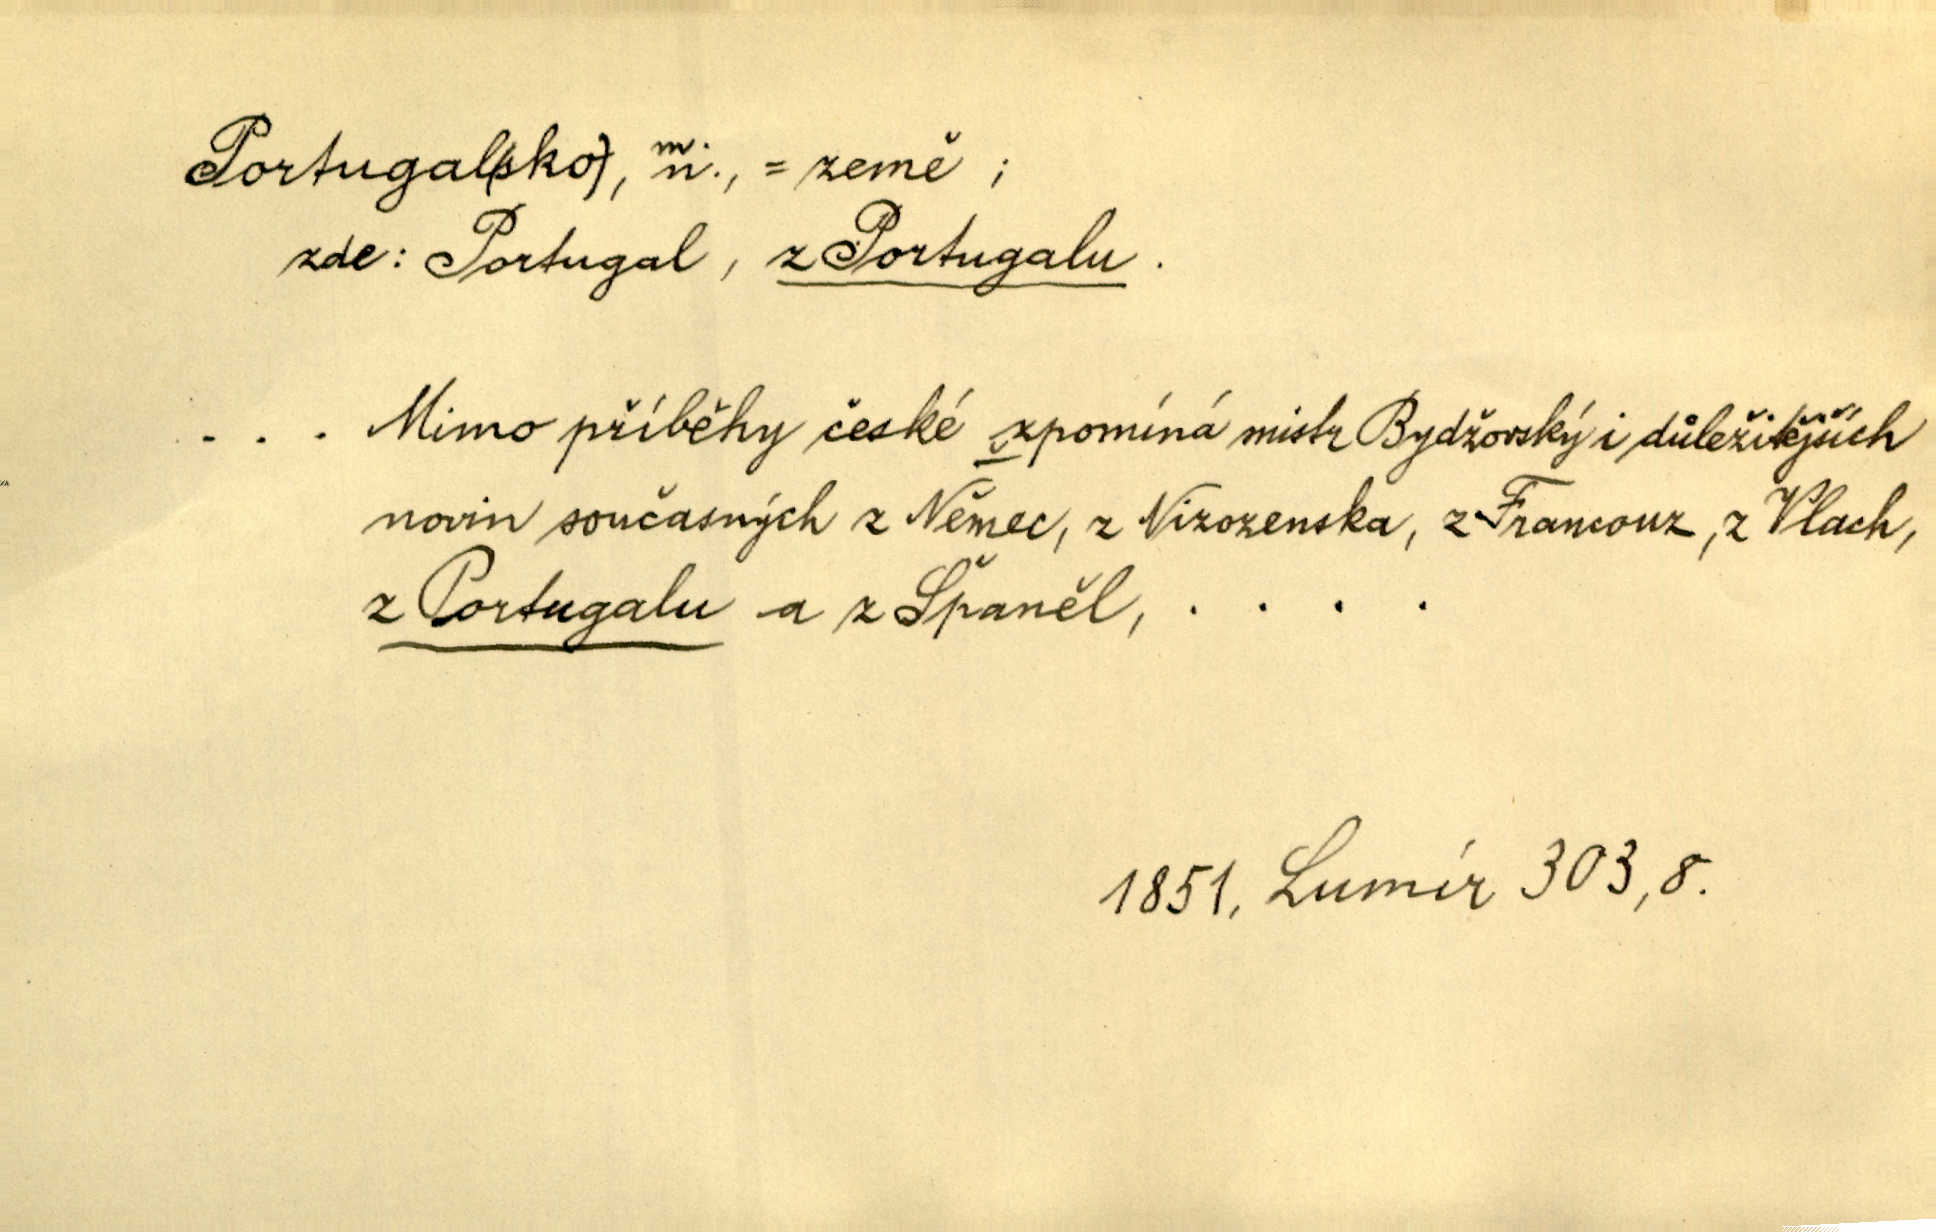 Portugal(sko), m. n., = země ;
zde : Portugal , z Portugalu .
. . . Mimo příběhy české zpomíná mistr Bydžovský i důležitějších
novin současných z Němec, z Nizozenska, z Francouz, z Vlach,
z Portugalu a z Španěl, . . . .
1851, Lumír 303, 8.